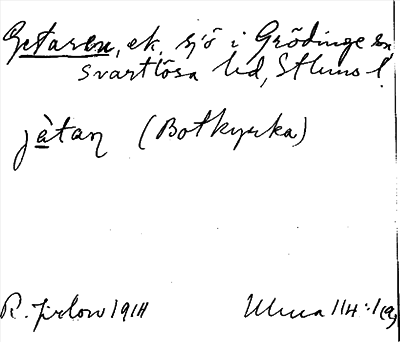 Getaren, ek, sjö i Grödinge sn
Svartlösa hd, Sthms l.
jàtaꞃ (Botkyrka)
R. Jirlow 1914 Ulma 114:1(a)